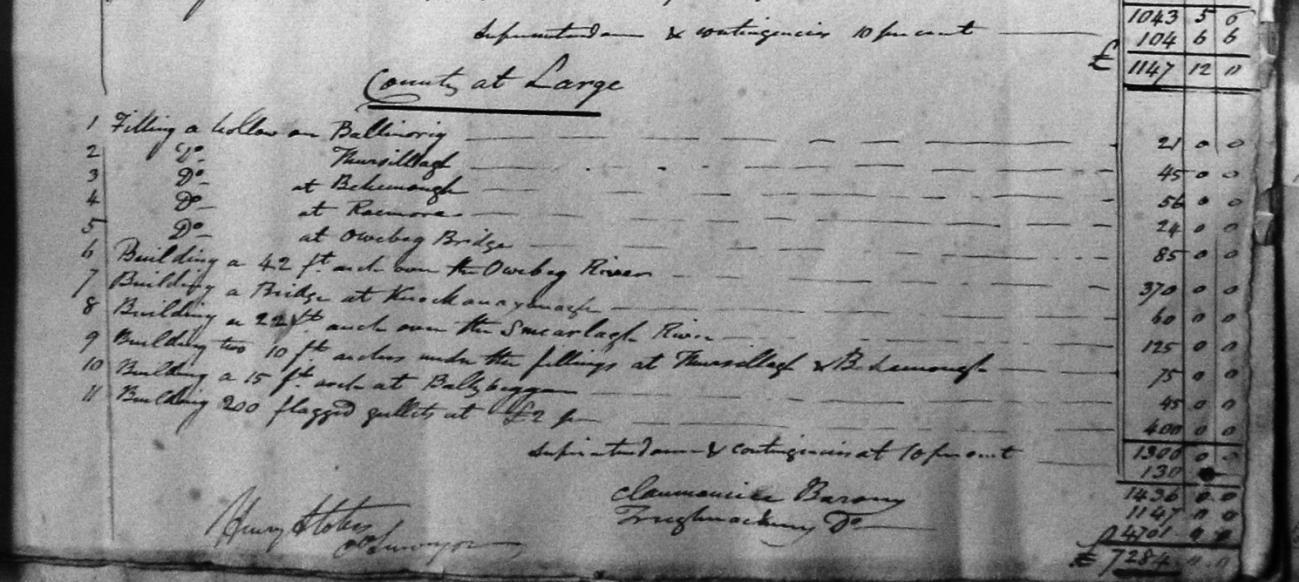 1043 5 0
Superintendance & contingencies 10 per cent 104 6 6
£ 1147 12 0
County at Large
1 Filling a hollow on Ballinorig 21 0 0
2 Do Thursillagh 45 0 0
3 Do at Behenough 56 0 0
4 Do at Raemore 24 0 0
5 Do at Owebeg Bridge 85 0 0
6 Building a 42 ft arch over the Owebeg River 370 0 0
7 Building a Bridge at 60 0 0
8 Building a 22 ft arch over the Smearlagh River 125 0 0
9 Building two 10 ft arches under the fillings at Thursillagh & Behenough 75 0 0
10 Building a 15 ft arch at Ballybeggan 45 0 0
11 Building 200 flagged gullets at £2 pr 400 0 0
1306 0 0
Superintendance & contingencies at 10 per cent 130
1436 0 0
Clanmaurice Barony 1147 0 0
Trughnackmy Do 4701
Henry Stokes
Co Surveyor
£ 7284 0 0